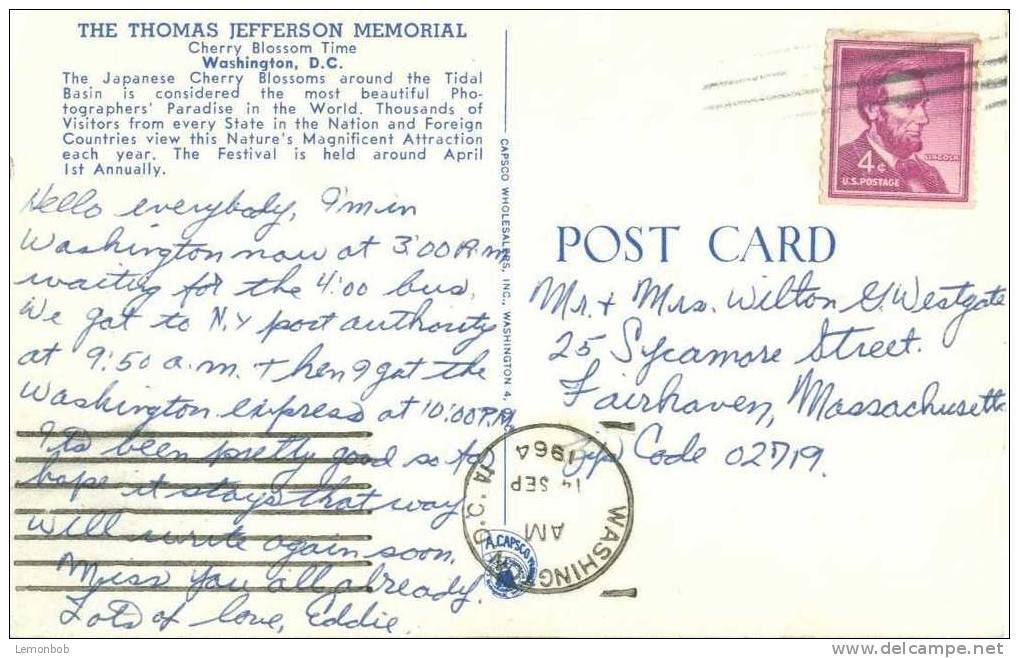 THE THOMAS JEFFERSON MEMORIAL
Cherry Blossom Time
Washington, D.C.
The Japanese Cherry Blossoms around the Tidal
Basin is considered the most beautiful Pho-
tographers' Paradise in the World. Thousands of
Visitors from every State in the Nation and Foreign
Countries view this Nature's Magnificent Attraction
each year. The Festival is held around April
1st Annually.
Hello everybody, I'm in
Washington now at 3:00 P.m.
waiting for the 4:00 bus.
We got to N.Y port authority
at 9:50 a.m. + then I got the
Washington express at 10:00 P.M.
Its been pretty good so far
hope it stays that way
will write again soon.
Miss you all already.
Lots of love, Eddie.
CAPSCO WHOLESALERS, INC., WASHINGTON 4,
A. CAPSCO
LINCOLN
4¢
U.S. POSTAGE
POST CARD
Mr. + Mrs. Wilton G. Westgate
25 Sycamore Street.
Fairhaven, Massachusetts
Zip Code 02719.
WASHINGTON, D.C.
AM
14 SEP
1964
Lemonbob
delcampe.net